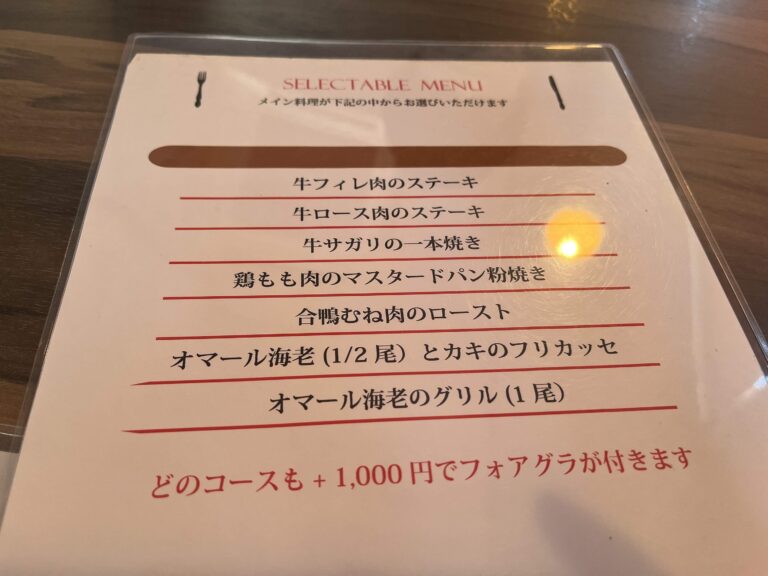 SELECTABLE MENU
メイン料理が下記の中からお選びいただけます
牛フィレ肉のステーキ
牛ロース肉のステーキ
牛サガリの一本焼き
鶏もも肉のマスタードパン粉焼き
合鴨むね肉のロースト
オマール海老 (1/2 尾）とカキのフリカッセ
オマール海老のグリル (1 尾）
どのコースも + 1,000 円でフォアグラが付きます